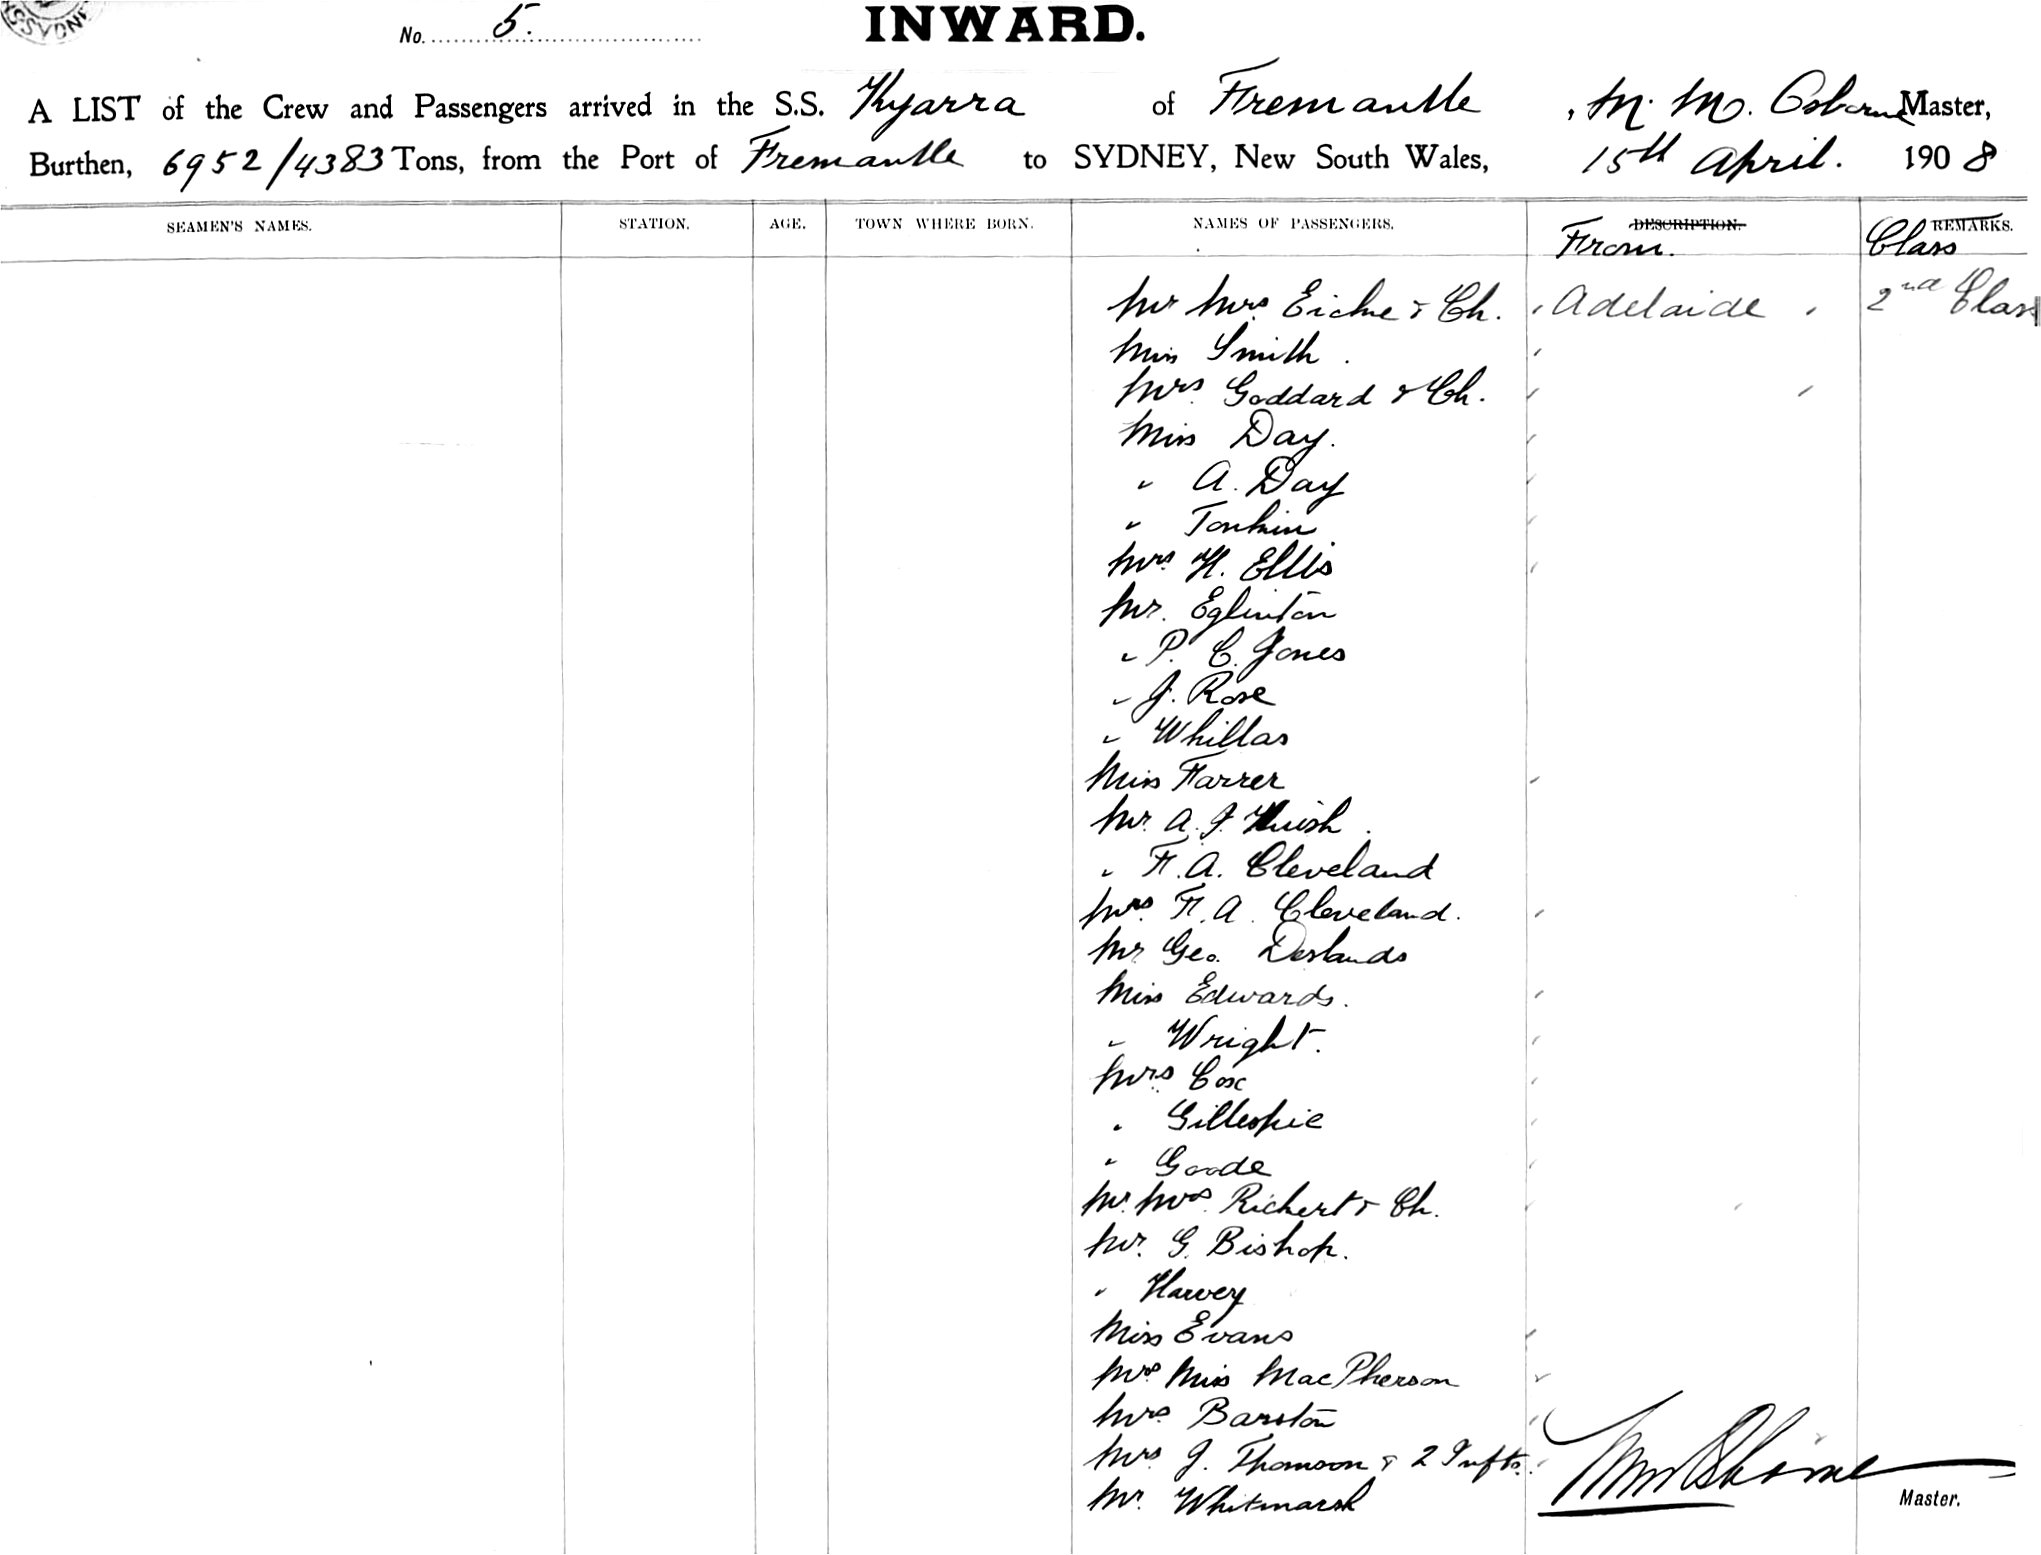 No. 5.
INWARD.
A LIST of the Crew and Passengers arrived in the S.S. Kyarra of Fremantle, M. M. Osborne Master,
Burthen, 6952/4383 Tons, from the Port of Fremantle to SYDNEY, New South Wales, 15th April. 1908
SEAMEN'S NAMES. STATION. AGE. TOWN WHERE BORN. NAMES OF PASSENGERS. DESCRIPTION. REMARKS.
From. Class
Mr Mrs Eichne & Ch. " Adelaide " 2nd Class
Miss Smith. "
Mrs Goddard & Ch. " "
Miss Day. "
" A. Day "
" Tonkin "
Mrs H. Ellis "
Mr. Eglinton
" P. C. Jones
" J. Rose
" Whillas
Miss Farrer "
Mr. A. J. Huish.
" F. A. Cleveland
Mrs. F. A. Cleveland. "
Mr Geo. Deslands
Miss Edwards. "
" Wright. "
Mrs Cox "
" Gillespie "
" Goode "
Mr. Mrs. Richert & Ch. " "
Mr. G. Bishop.
" Harvey
Miss Evans "
Mrs Miss MacPherson "
Mrs Barston "
Mrs J. Thomson & 2 Infts. "
Mr. Whitmarsh
Master.